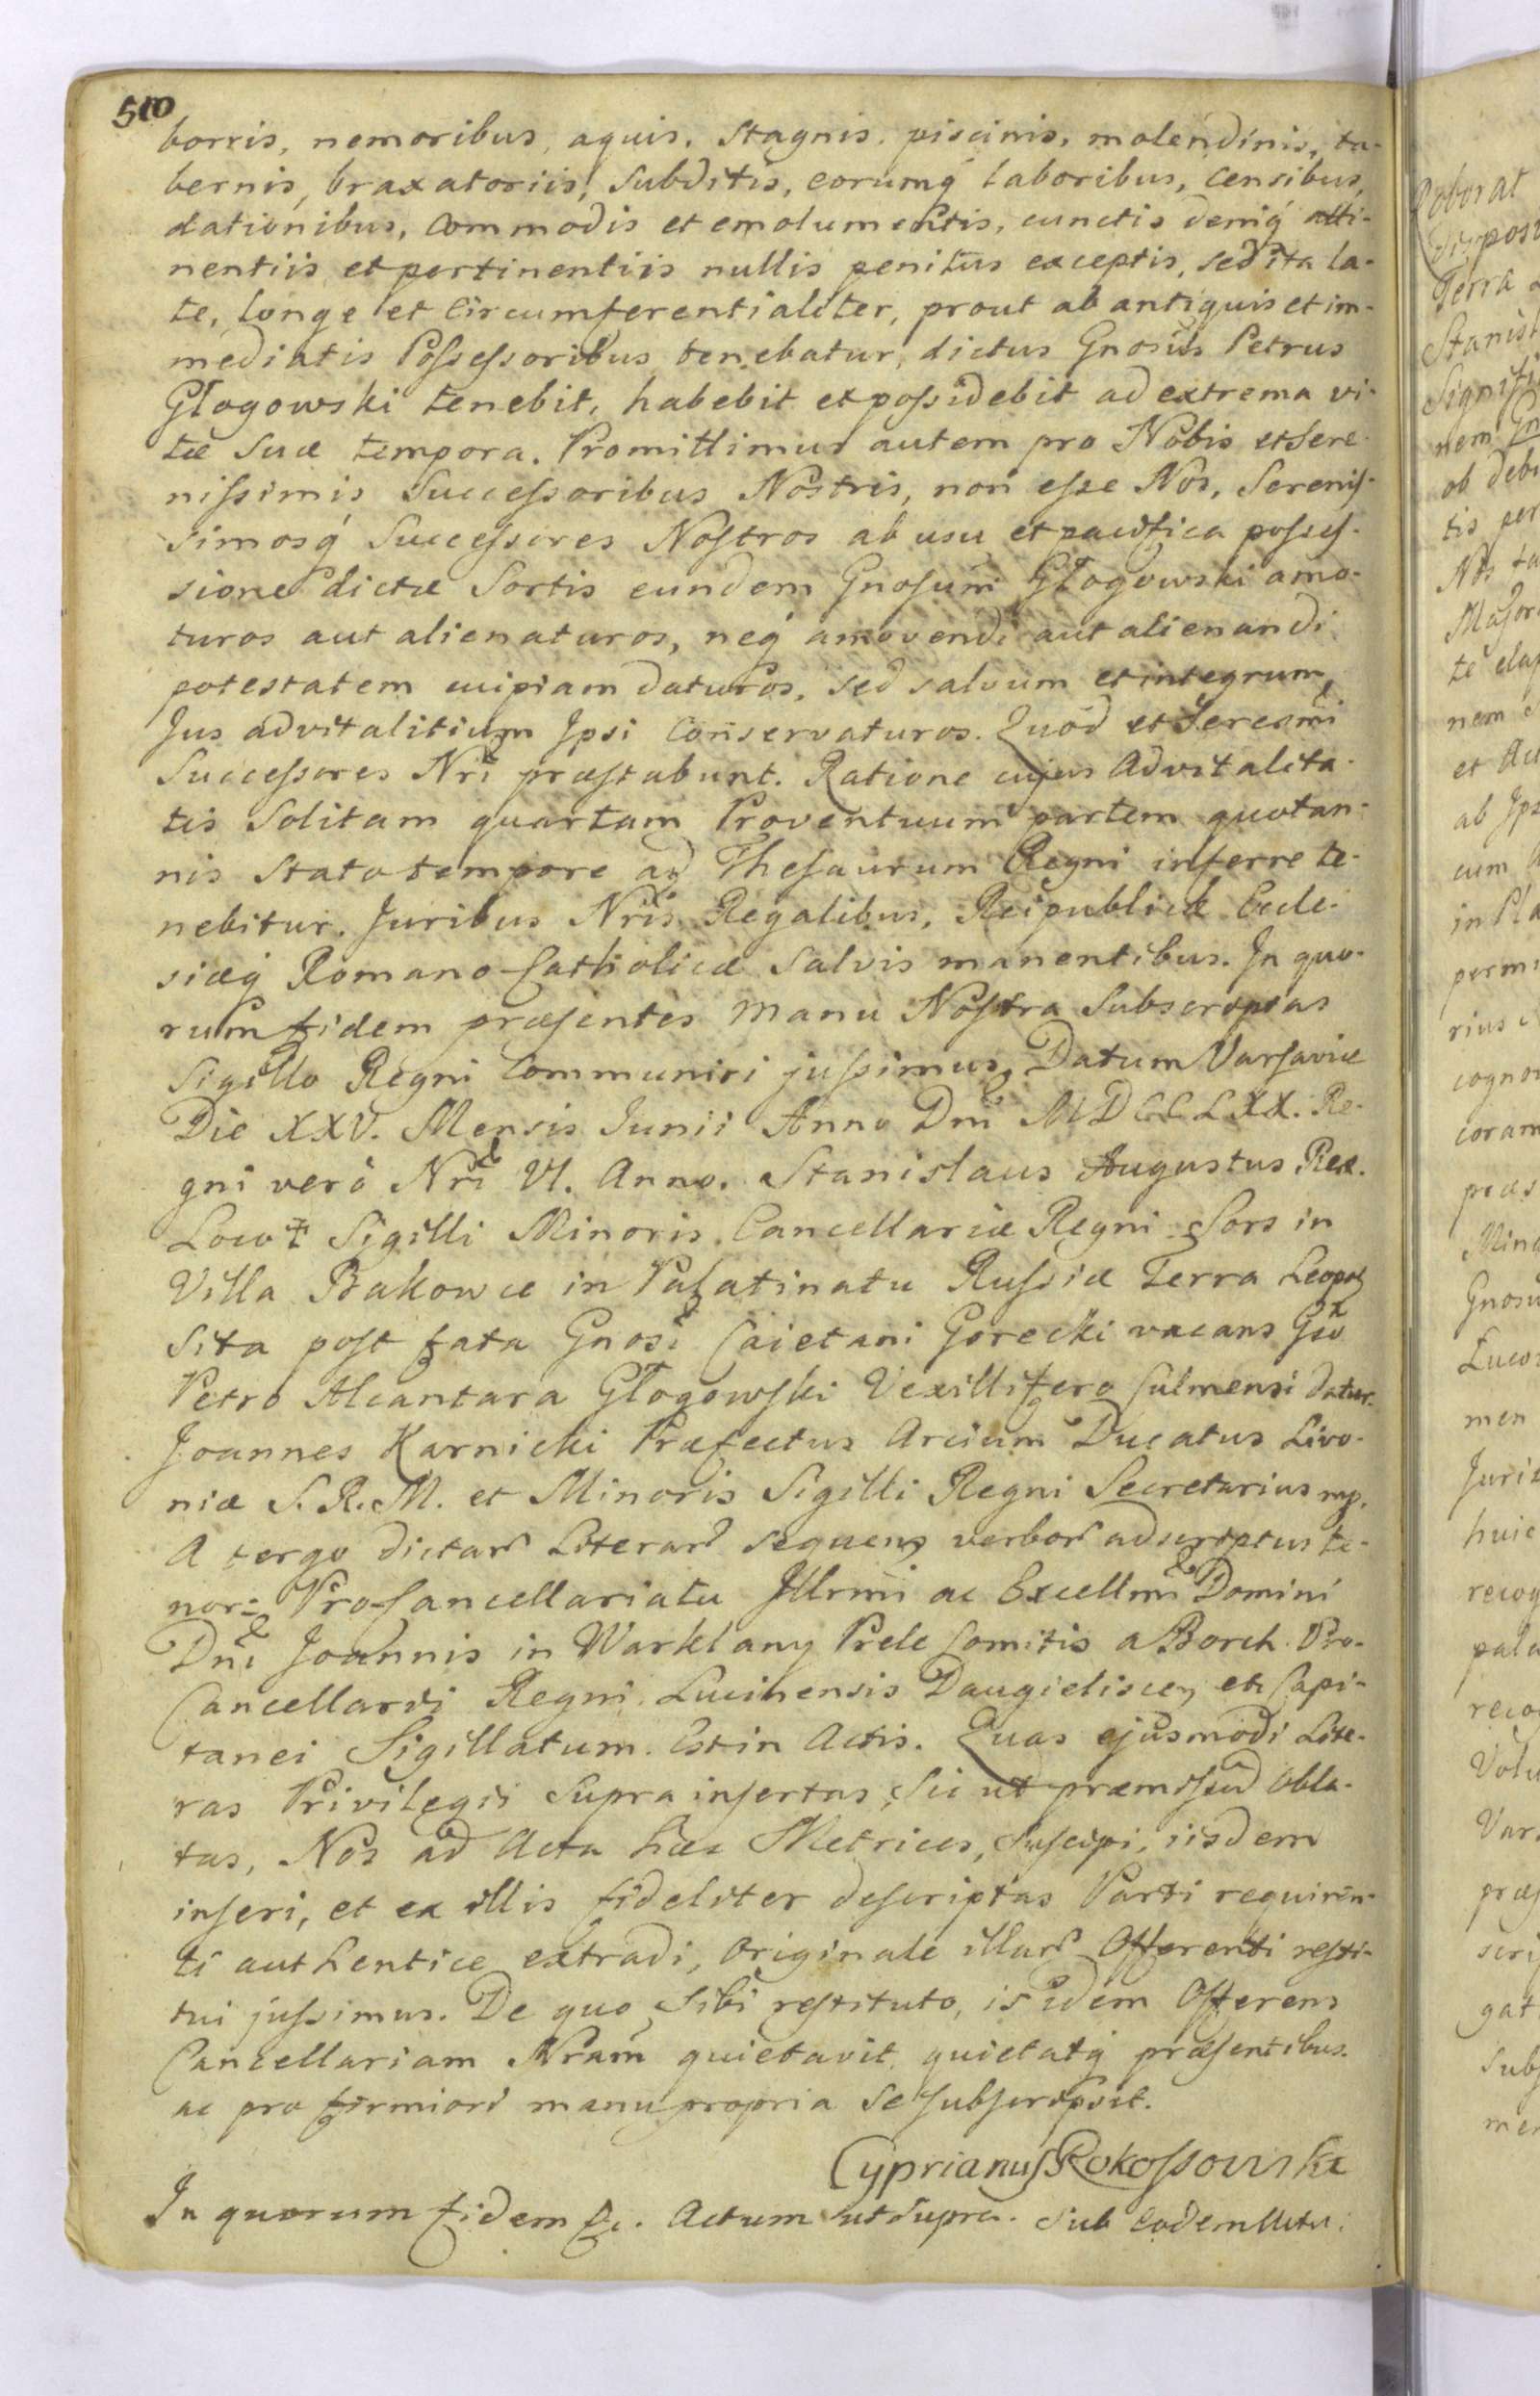 510
borris, nemoribus, aquis, Stagnis, piscinis, molendinis, ta-
bernis, braxatoriis, Subditis, eorumq́ laboribus, Censibus,
dationibus, Commodis et emolumentis, cunctis deniq́ atti-
nentiis et pertinentiis nullis penitus exceptis, sed ita la-
te, longe et circumferentialiter, prout ab antiquis et im-
mediatis Possessoribus tenebatur, dictus Gnosus Petrus
Głogowski tenebit, habebit et possidebit ad extrema vi-
tæ Suæ tempora. Promittimus autem pro Nobis et Sere-
nissimis Successoribus Nostris, non esse Nos, Serenis-
simosq́ Successores Nostros ab usu et pacifica posses-
sione dictæ Sortis eundem Gnosum Głogowski amo-
turos aut alienaturos, neq́ amovendi aut alienandi
potestatem cuipiam daturos, sed salvum et integrum
Jus advitalitium Ipsi Conservaturos. Quod et Sereñmi
Successores Nri præstabunt. Ratione cujus Advitalita-
tis Solitam quartam Proventuum partem quotan-
nis Stato tempore ad Thesaurum Regni inferre te-
nebitur. Juribus Nris Regalibus, Reipublicæ Eccle-
siæq́ Romano-Catholicæ Salvis manentibus. In quo-
rum fidem præsentes Manu Nostra Subscriptas
Sigillo Regni Communiri jussimus, Datum Varsaviæ
Die XXV. Mensis Junii Anno Dni MDCCLXX. Re-
gni verò Nri VI. Anno. Stanislaus Augustus Rex.
Locus Sigilli Minoris Cancellariæ Regni. Sors in
Villa Bakowce in Palatinatu Russiæ Terra Leopol
Sita post fata Gnosi Caietani Gorecki vacans Gso
Petro Alcantara Głogowski Vexillifero Culmensi datur.
Joannes Karnicki Præfectus Arcium Ducatus Livo-
niæ S. R. M. et Minoris Sigilli Regni Secretarius mp.
A tergo dictar Literar sequens verbor adscriptus te-
nor: Pro-Cancellariatu Illrmi ac Excellmi Domini
Dni Joannis in Warklany Prele Comitis a Borch Pro-
Cancellarii Regni, Lucinensis Daugieliscen etc Capi-
tanei Sigillatum. Est in Actis. Quas ejusmodi Lite-
ras Privilegii Supra insertas, Sic ut præmissum Obla-
tas, Nos ad Acta hæc Metrices, Suscipi, iisdem
inseri, et ex illis fideliter descriptas Parti requiren-
ti authentice extradi, Originale illar Offerenti resti-
tui jussimus. De quo Sibi restituto, is idem Offerens
Cancellariam Nram quietavit, quietatq́ præsentibus.
ac pro firmiori manu propria Se Subscripsit.
Cyprianus Rokossowski
In quorum fidem etc. Actum ut Supra. Sub Eodem Actu.